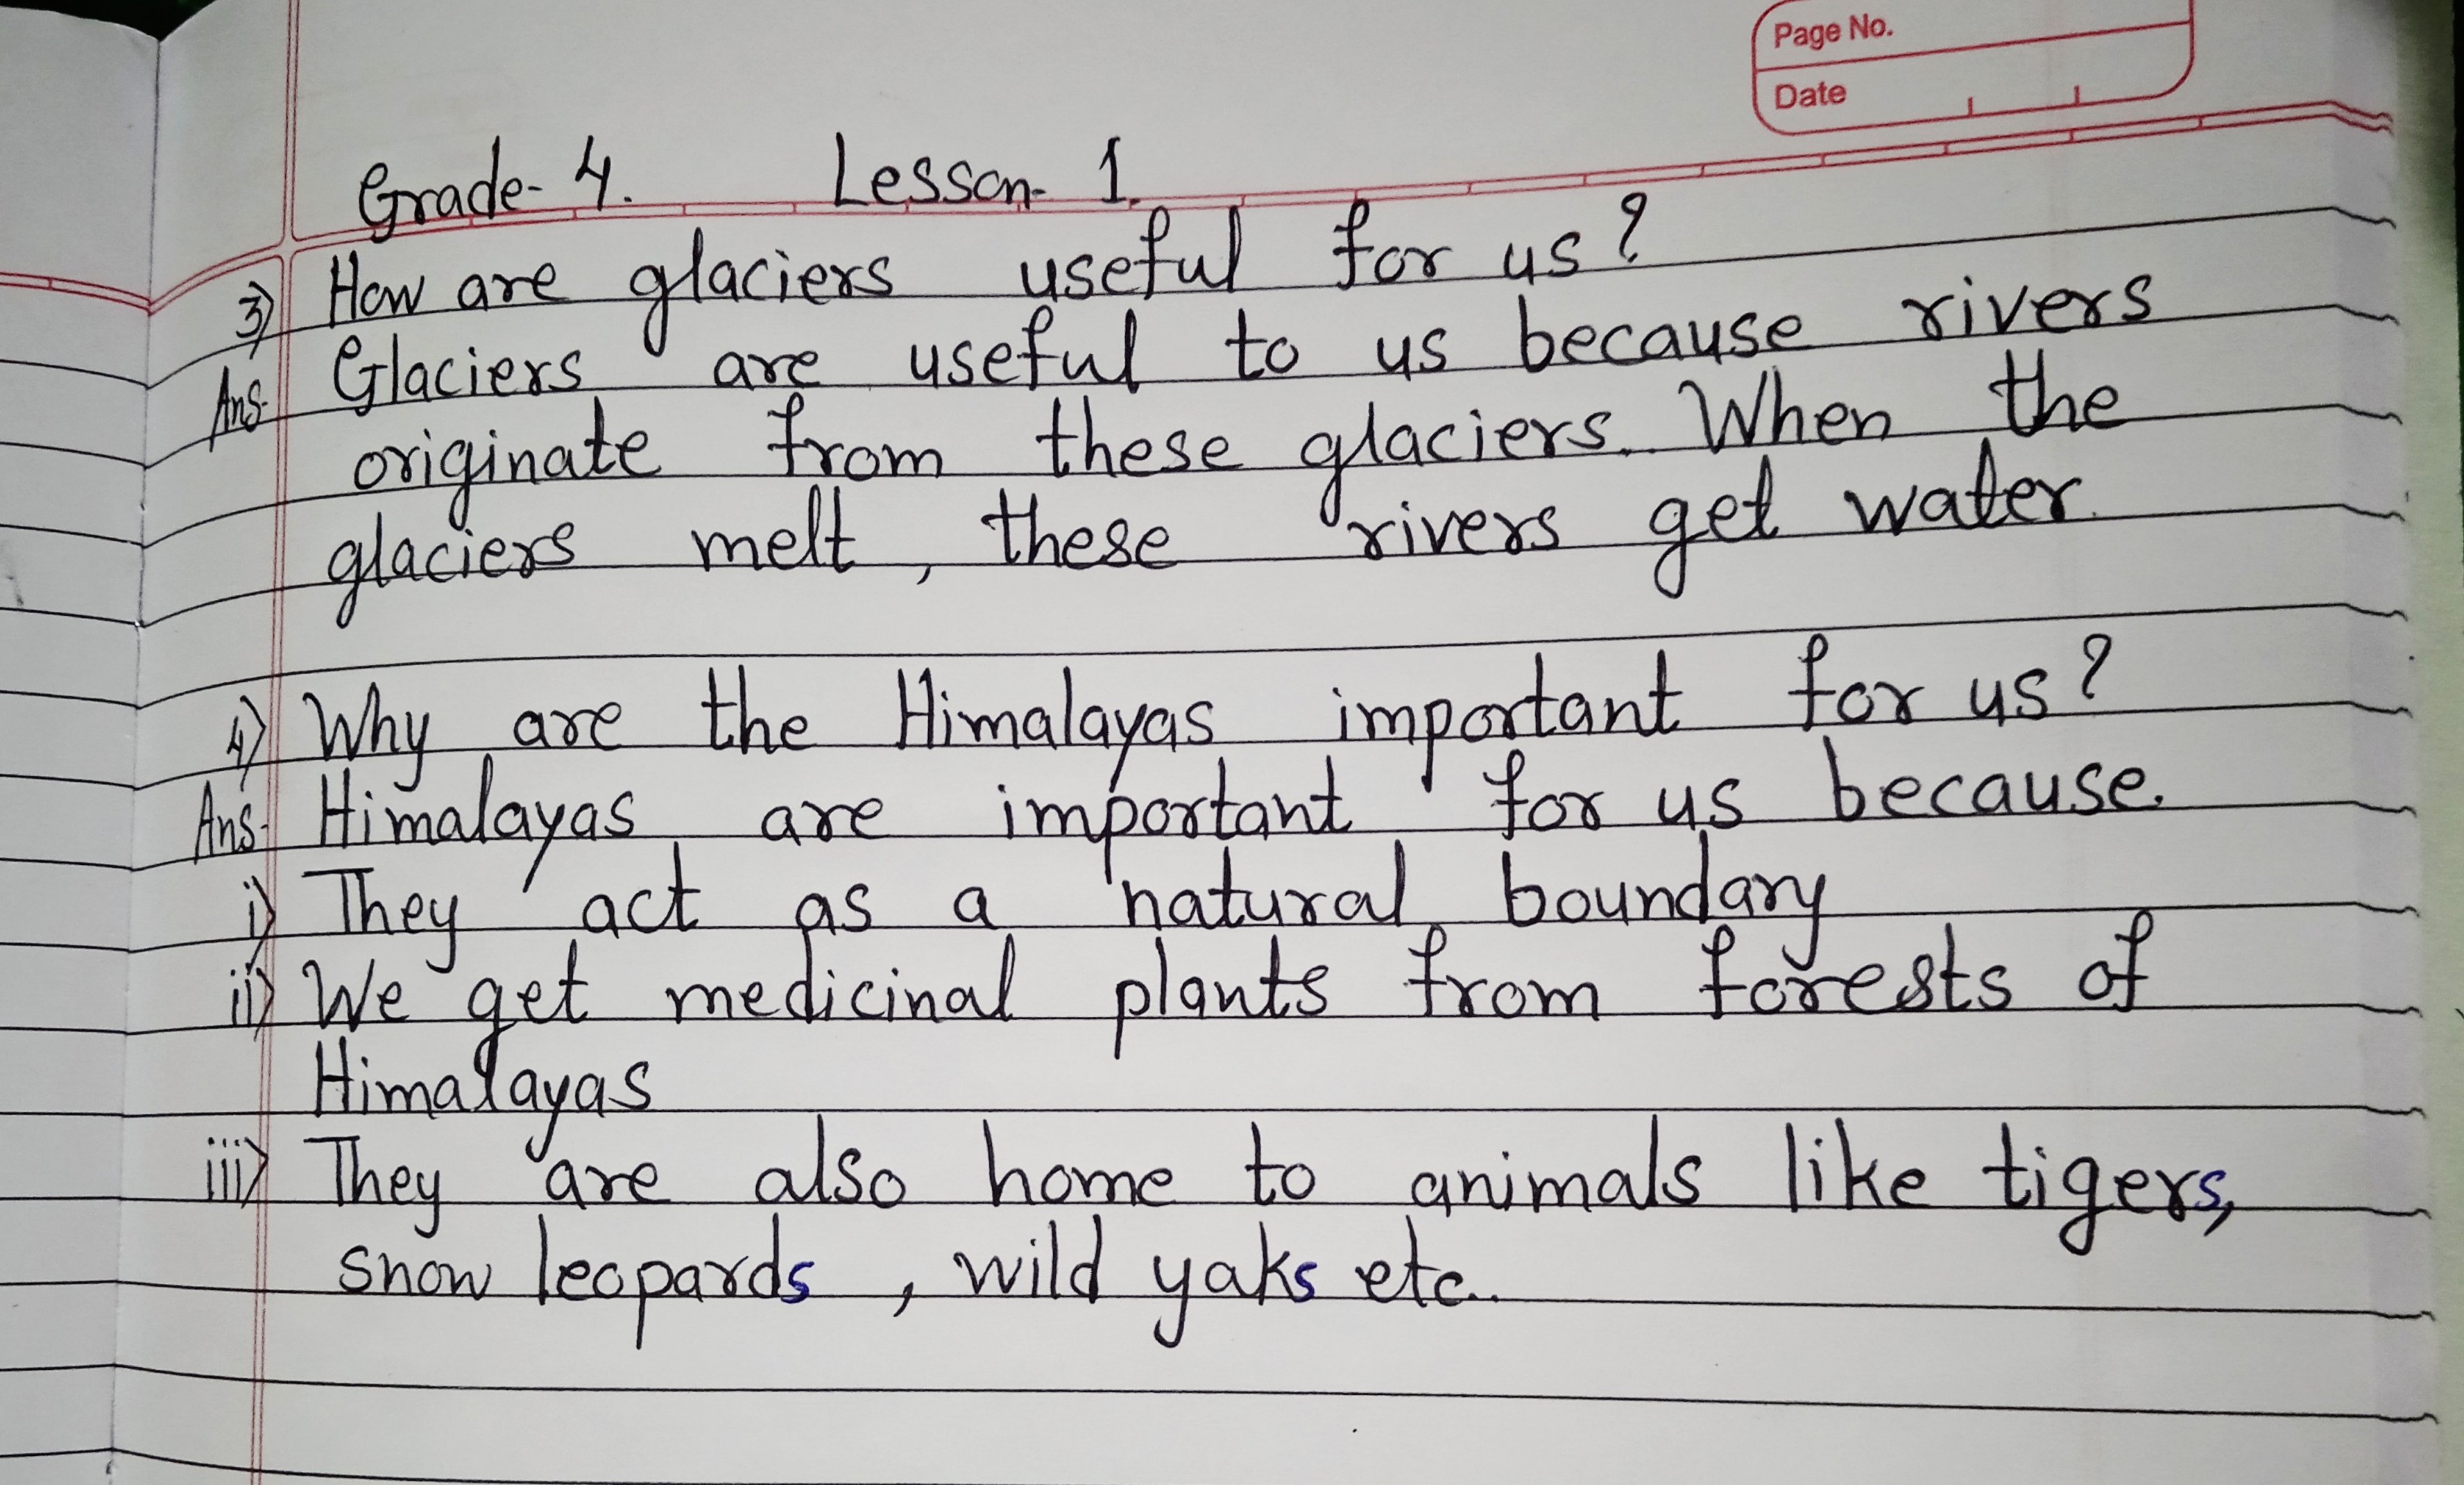 Page No.
Date
Grade- 4. Lesson- 1.
3) How are glaciers useful for us?
Ans- Glaciers are useful to us because rivers
originate from these glaciers. When the
glaciers melt, these rivers get water.
4) Why are the Himalayas important for us?
Ans- Himalayas are important for us because.
i) They act as a natural boundary
ii) We get medicinal plants from forests of
Himalayas
iii) They are also home to animals like tigers,
snow leopards, wild yaks etc..